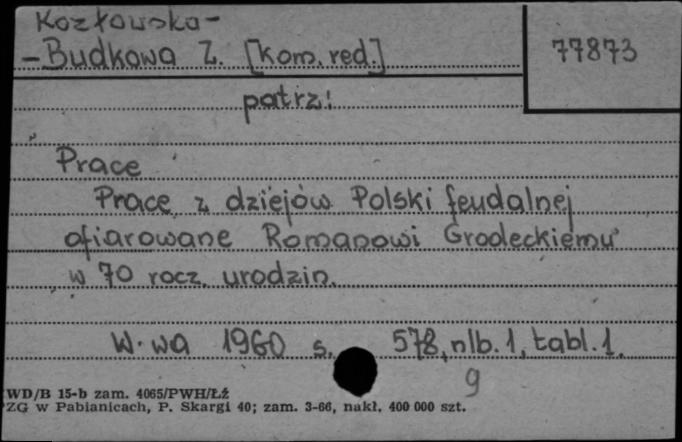 Kozłowska-
-Budkowa Z. [kom. red.]
77873
patrz:
Prace
Prace z dziejów Polski feudalnej
ofiarowane Romanowi Grodeckiemu
w 70 rocz. urodzin.
W-wa 1960 s. 578, nlb. 1, tabl. 1.
9
WD/B 15-b zam. 4065/PWH/Łź
ZG w Pabianicach, P. Skargi 40; zam. 3-66, nakł. 400 000 szt.